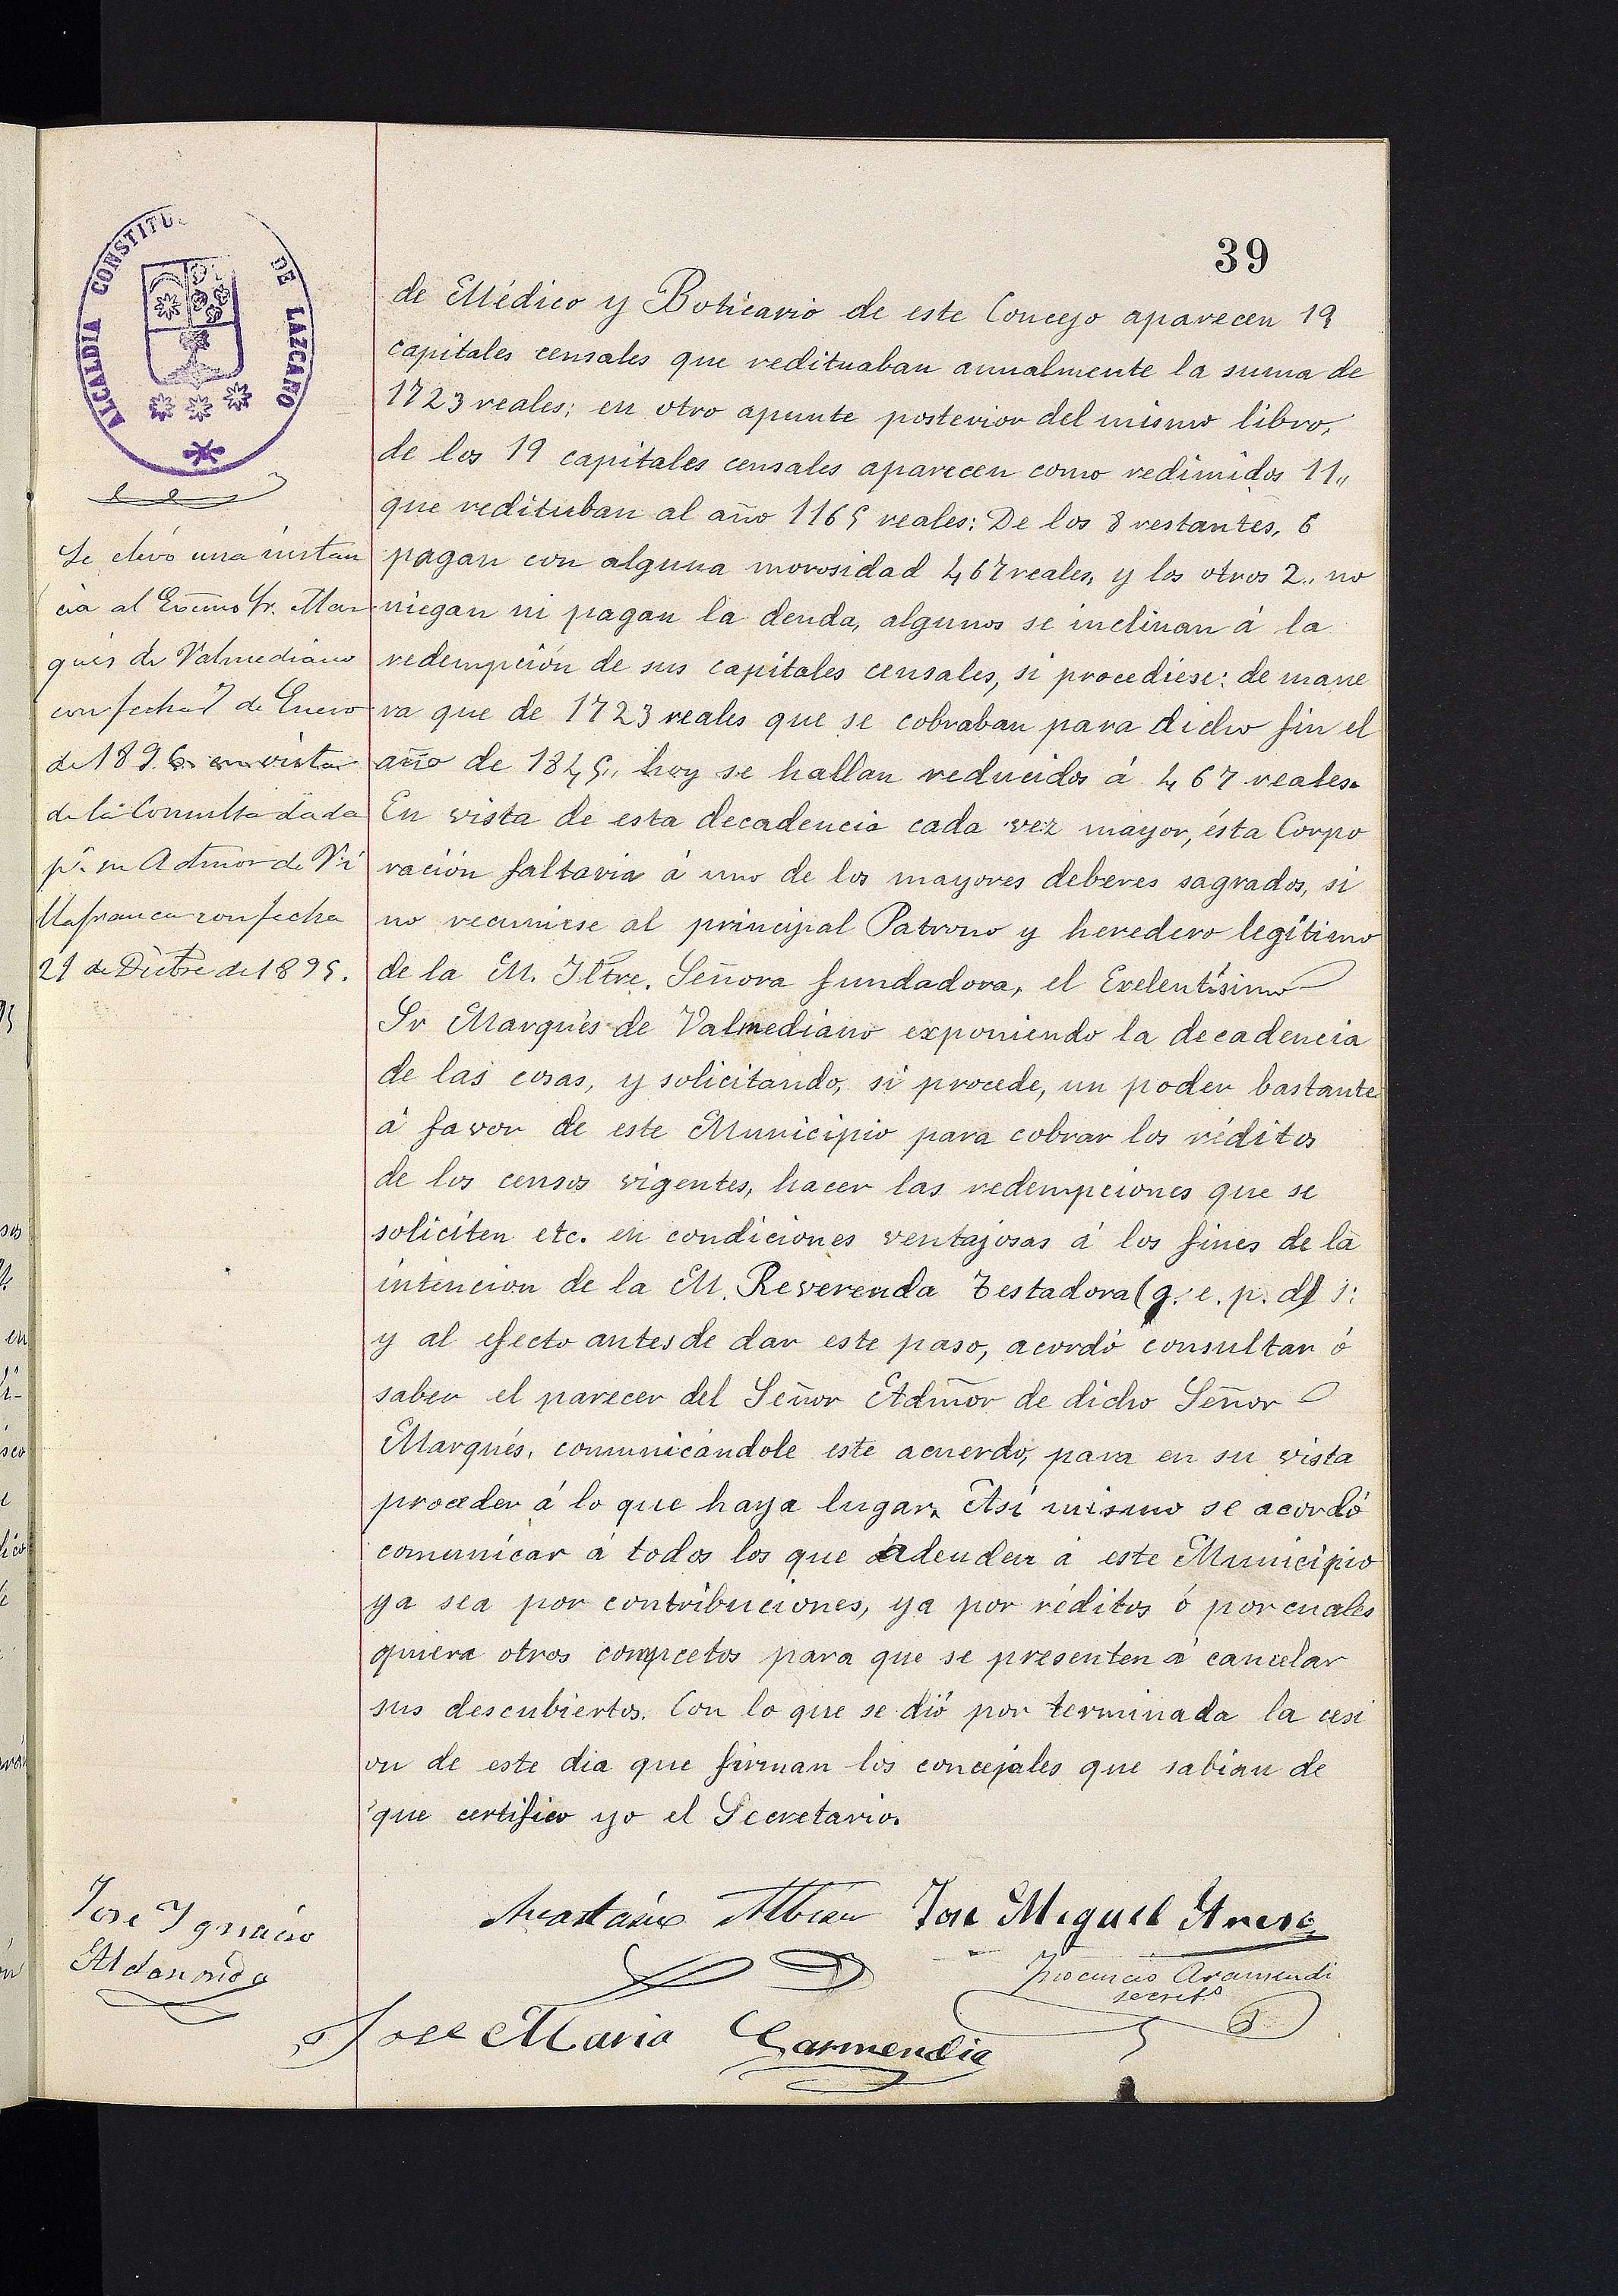 39
ALCALDIA CONSTITU DE LAZCANO
de Médico y Boticario de este Concejo aparecen 19
capitales censales que redituaban anualmente la suma de
1723 reales; en otro apunte posterior del mismo libro,
de los 19 capitales censales aparecen como redimidos 11,,
que redituban al año 1165 reales: De los 8 restantes, 6
pagan con alguna morosidad 467 reales, y los otros 2,, no
niegan ni pagan la deuda, algunos se inclinan á la
redempción de sus capitales censales, si procediese: de mane
ra que de 1723 reales que se cobraban para dicho fin el
año de 1845,, hoy se hallan reducidos á 467 reales.
En vista de esta decadencia cada vez mayor, ésta Corpo
ración faltaria á uno de los mayores deberes sagrados, si
no recurriese al principal Patrono y heredero legítimo
de la M. Iltre. Señora fundadora, el Exelentísimo
Sr Marqués de Valmediano exponiendo la decadencia
de las cosas, y solicitando, si procede, un poder bastante
á favor de este Municipio para cobrar los réditos
de los censos vigentes, hacer las redempciones que se
soliciten etc. en condiciones ventajosas á los fines de la
intencion de la M. Reverenda Testadora (q. e. p. d.):
y al efecto antes de dar este paso, acordó consultar ó
saber el parecer del Señor Admor de dicho Señor
Marqués, comunicándole este acuerdo, para en su vista
proceder á lo que haya lugar. Así mismo se acordó
comunicar á todos los que adeudan á este Municipio
ya sea por contribuciones, ya por réditos ó por cuales
quiera otros compcetos para que se presenten á cancelar
sus descubiertos. Con lo que se dió por terminada la cesi
on de este dia que firman los concejales que sabian de
que certifico yo el Secretario.
Se elevó una instan
cia al Excmo Sr. Mar
qués de Valmediano
con fecha 7 de Enero
de 1896 en vista
de la Consulta dada
pr. su Admor de Vi
llafranca con fecha
21 de Dictre de 1895.
José Ygnacio
Aldanondo
Anastasio Albisu José Miguel
Aramendi
secreto
José Maria Garmendia